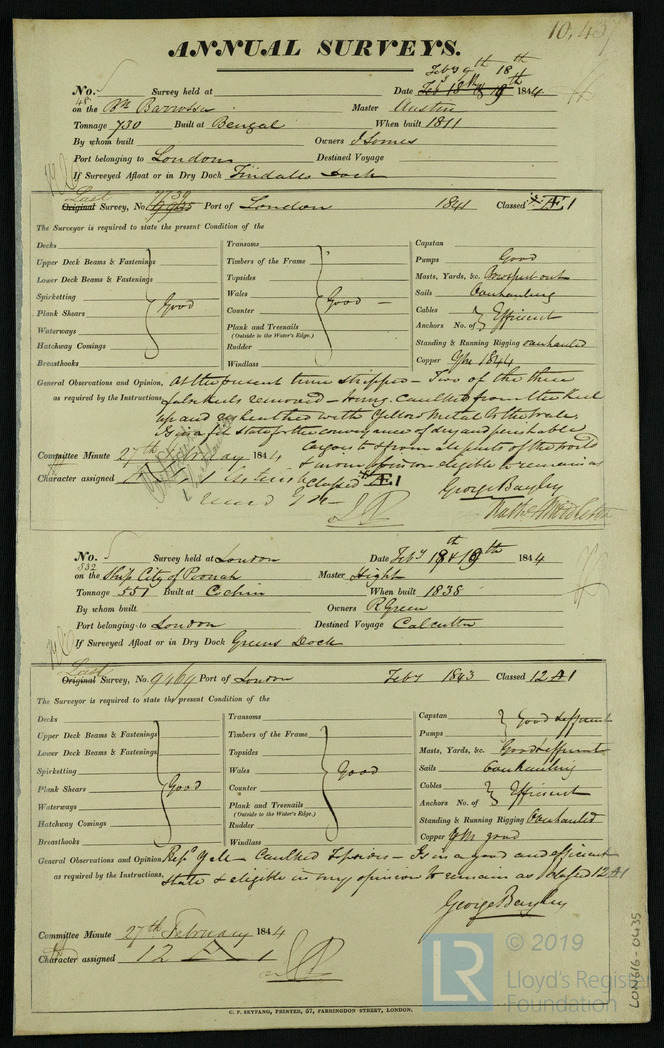 10,43
ANNUAL SURVEYS.
Feby 9th 18th
No. Survey held at Date 1844
48 on the Bk Barrossa Master Austin
Tonnage 730 Built at Bengal When built 1811
By whom built Owners J Somes
Port belonging to London Destined Voyage
If Surveyed Afloat or in Dry Dock Tindalls Dock
Last
Original Survey, No. Port of London 1841 Classed Æ 1
The Surveyor is required to state the present Condition of the
Decks
Upper Deck Beams & Fastenings
Lower Deck Beams & Fastenings
Spirketting
Plank Shears
Waterways
Hatchway Comings
Breasthooks
Good
Transoms
Timbers of the Frame
Topsides
Wales
Counter
Plank and Treenails
(Outside to the Water's Edge.)
Rudder
Windlass
Good
Capstan
Pumps Good
Masts, Yards, &c.
Sails Overhauling
Cables
Anchors No. of
Efficient
Standing & Running Rigging overhauled
Copper YM 1844
General Observations and Opinion, At the present time stripped – Two of the three
as required by the Instructions, false keels removed – caulked from the keel
up and resheathed with Yellow Metal to the wales.
Is in a fit state for the conveyance of dry and perishable
cargoes to & from all parts of the world
Committee Minute 27th February 1844 & in our opinion eligible to remain as
Character assigned classed Æ 1
George Bayley
No. Survey held at London Date Feby 18 & 19th 1844
532 on the Ship City of Poonah Master Hight
Tonnage 551 Built at Cochin When built 1838
By whom built Owners R Green
Port belonging to London Destined Voyage Calcutta
If Surveyed Afloat or in Dry Dock Greens Dock
Last
Original Survey, No. 9469 Port of London Feby 1843 Classed 12 A 1
The Surveyor is required to state the present Condition of the
Decks
Upper Deck Beams & Fastenings
Lower Deck Beams & Fastenings
Spirketting
Plank Shears
Waterways
Hatchway Comings
Breasthooks
Good
Transoms
Timbers of the Frame
Topsides
Wales
Counter
Plank and Treenails
(Outside to the Water's Edge.)
Rudder
Windlass
Good
Capstan
Pumps
Good & efficient
Masts, Yards, &c. Good & efficient
Sails Overhauling
Cables
Anchors No. of
Efficient
Standing & Running Rigging Overhauled
Copper YM good
General Observations and Opinion Caulked Topsides – Is in a good and efficient
as required by the Instructions, State & eligible in my opinion to remain as classed 12 A 1
George Bayley
Committee Minute 27th February 1844
Character assigned 12 A 1
LR © 2019
Lloyd's Register
Foundation
LON616-0435
C. F. SEYFANG, PRINTER, 57, FARRINGDON STREET, LONDON.